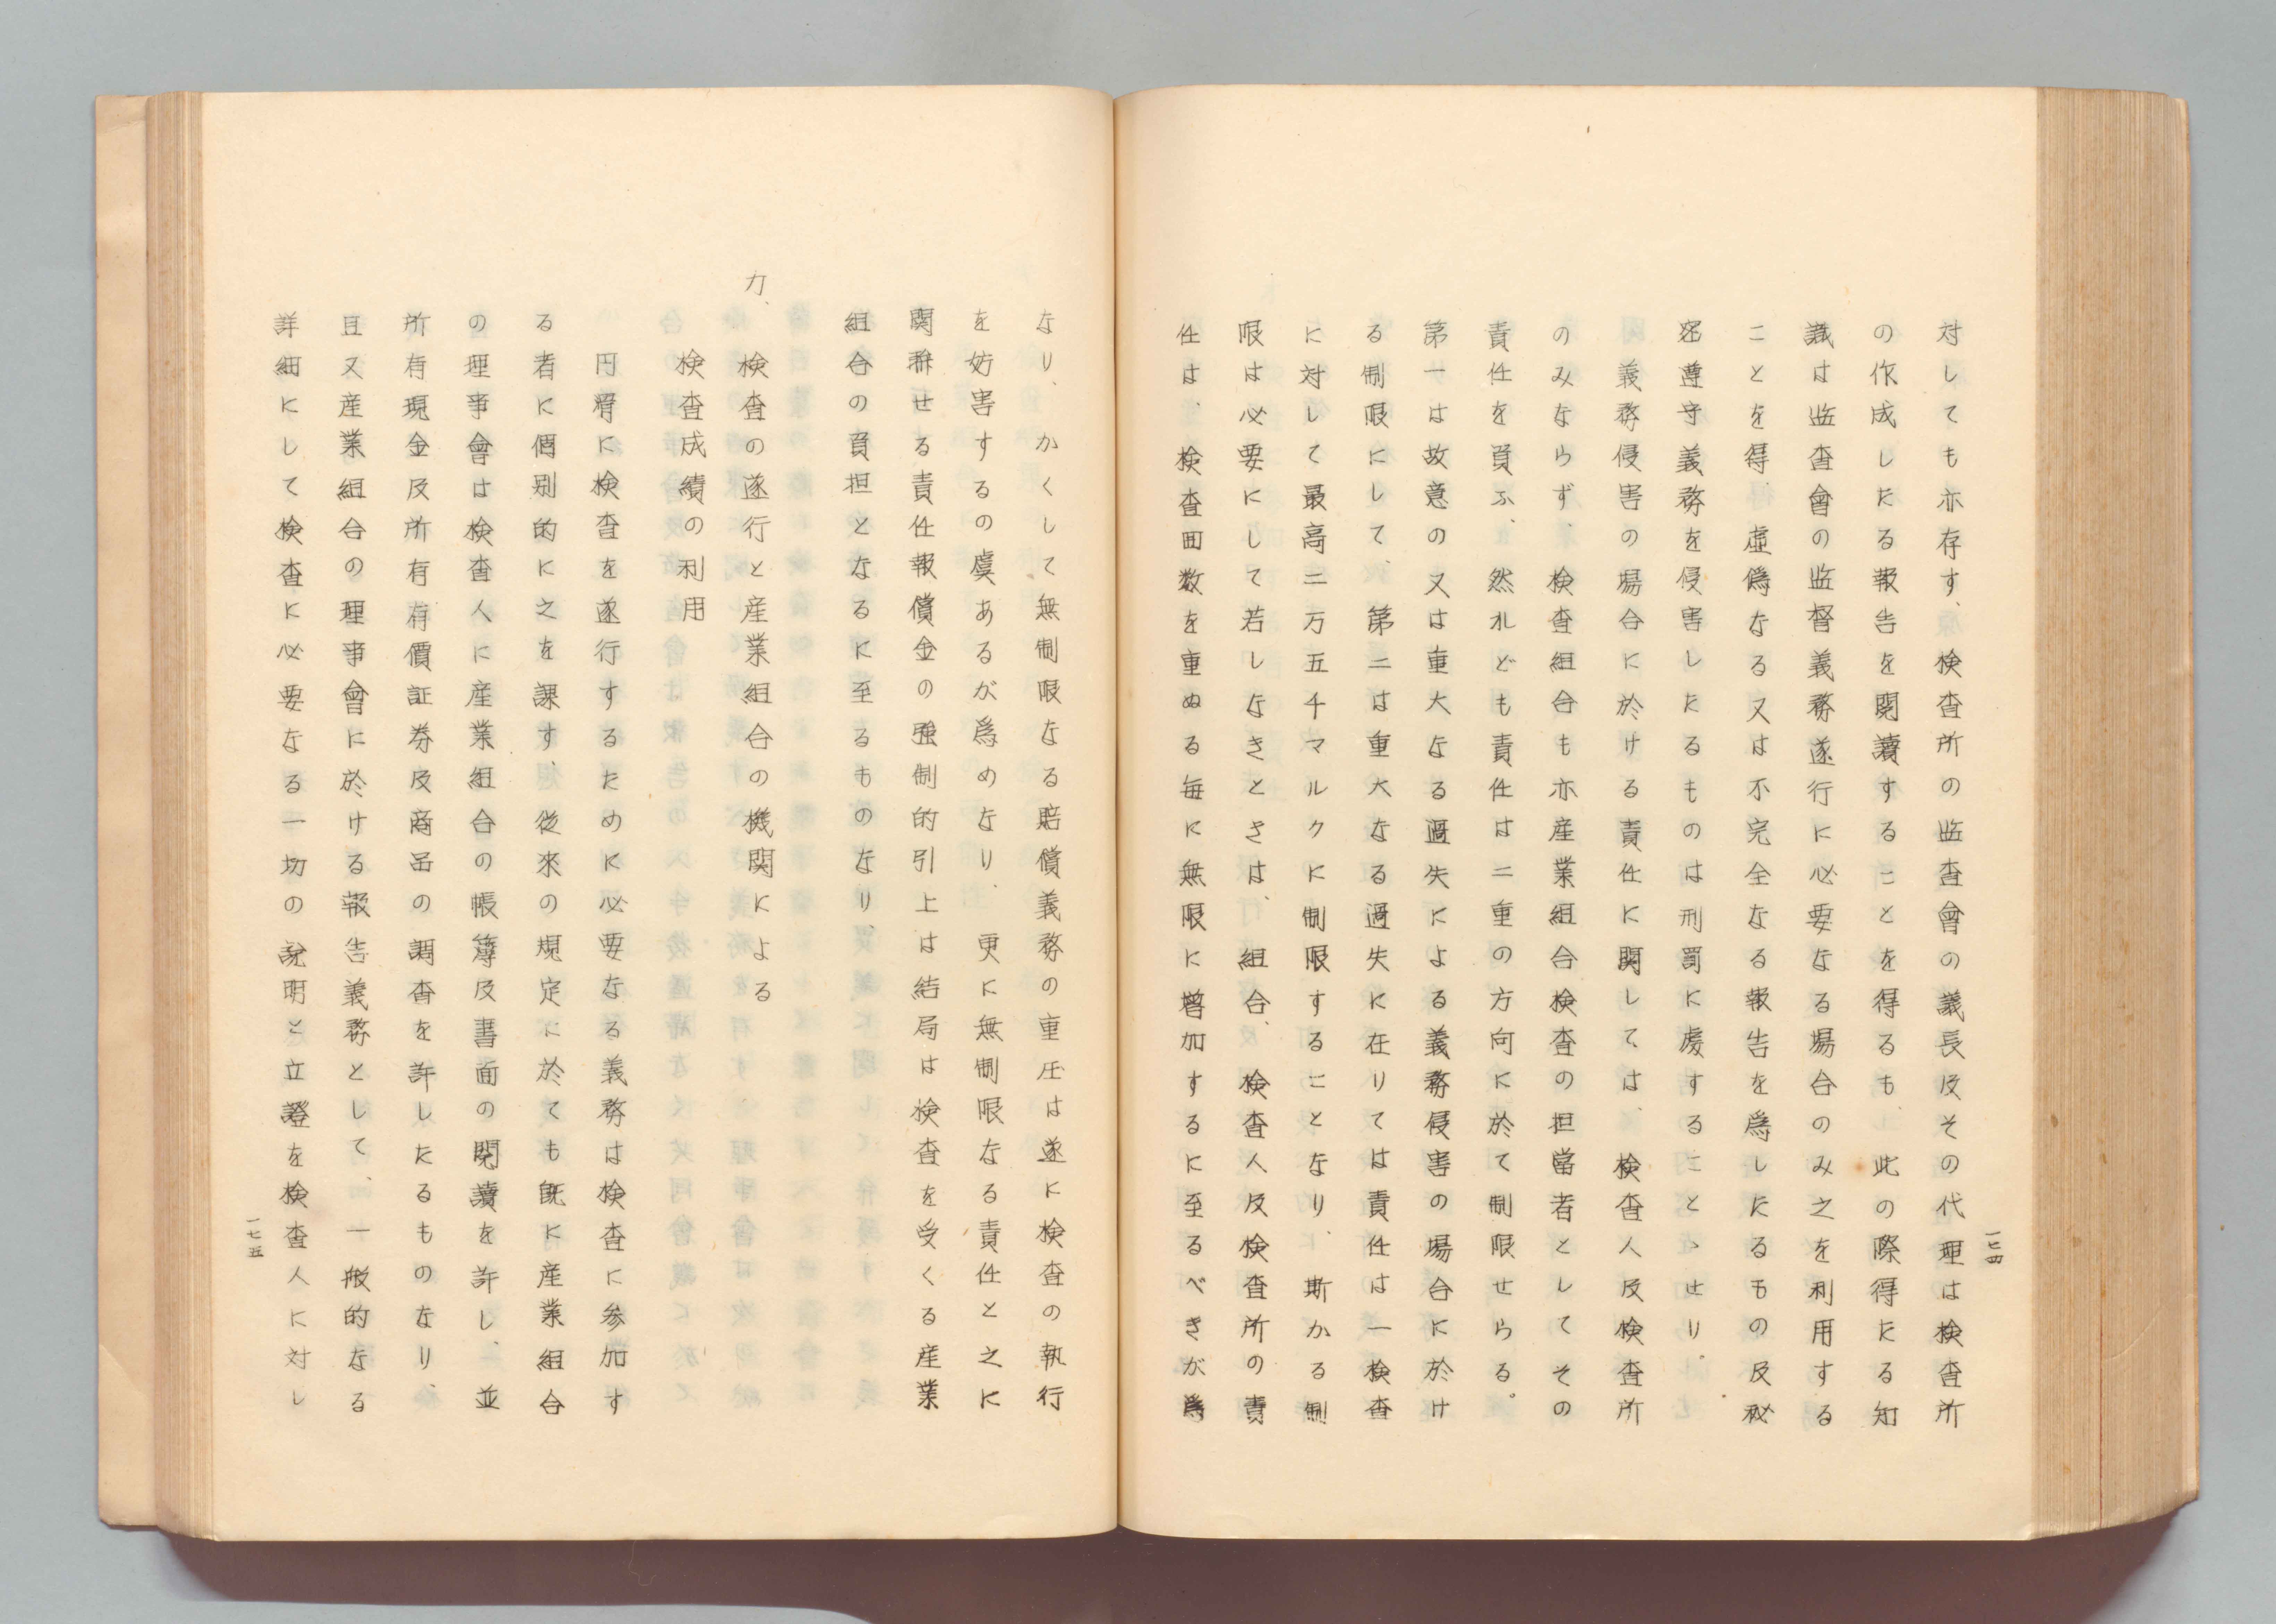 対しても亦存す、検査所の監査會の議長及その代理は検査所
の作成したる報告を閲讀することを得るも、此の際得たる知
識は監査會の監督義務遂行に必要なる場合のみ之を利用する
ことを得、虚偽なる又は不完全なる報告を爲したるもの及秘
密遵守義務を侵害したるものは刑罰に處することゝせり。
義務侵害の場合に於ける責任に関しては、検査人及検査所
のみならず、検査組合も亦産業組合検査の担當者としてその
責任を負ふ、然れども責任は二重の方向に於て制限せらる。
第一は故意の又は重大なる過失による義務侵害の場合に於け
る制限にして、第二は重大なる過失に在りては責任は一検査
に対して最高二万五千マルクに制限することなり、斯かる制
限は必要にして若しなきときは、組合、検査人及検査所の責
任は、検査回数を重ぬる毎に無限に増加するに至るべきが爲
一七四
なり、かくして無制限なる賠償義務の重圧は遂に検査の執行
を妨害するの虞あるが爲めなり、更に無制限なる責任と之に
関聯せる責任報償金の強制的引上は結局は検査を受くる産業
組合の負担となるに至るものなり、
力、検査の遂行と産業組合の機関による
検査成績の利用
円滑に検査を遂行するために必要なる義務は検査に参加す
る者に個別的に之を課す、從來の規定に於ても既に産業組合
の理事會は検査人に産業組合の帳簿及書面の閲讀を許し、並
所有現金及所有有價証券及商品の調査を許したるものなり、
且又産業組合の理事會に於ける報告義務として、一般的なる
詳細にして検査に必要なる一切の說明と立證を検査人に対し
一七五